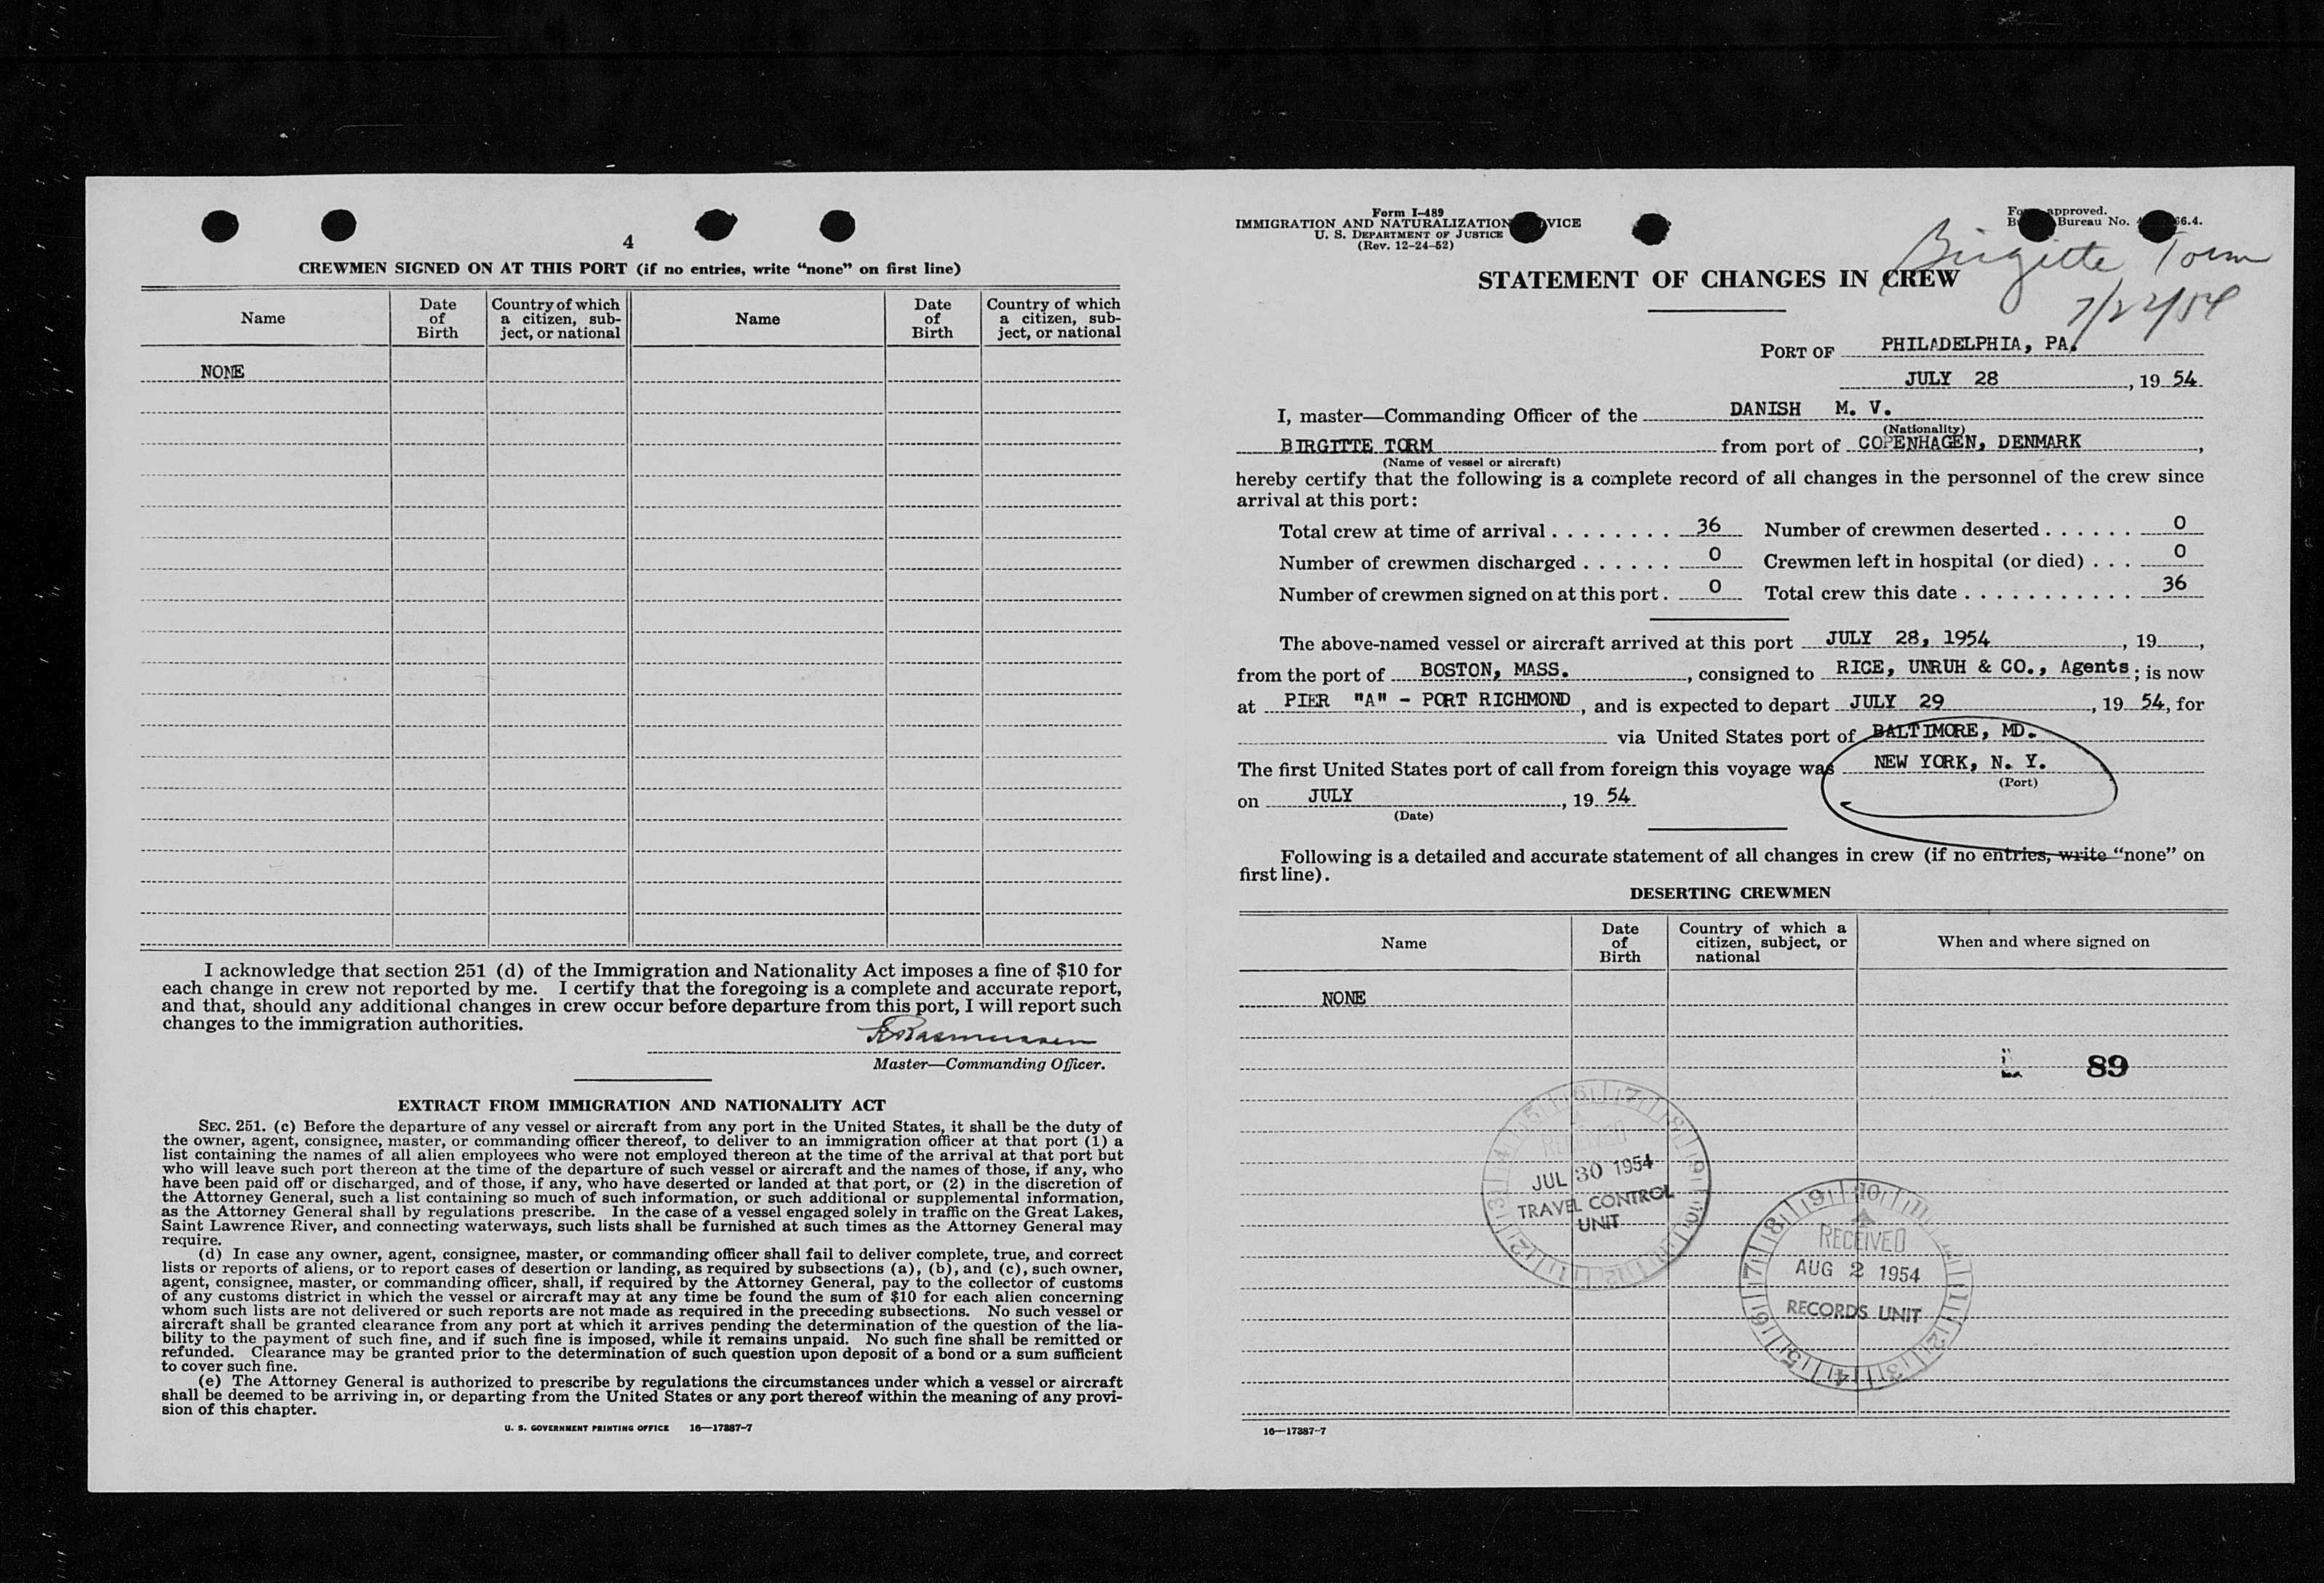 4
CREWMEN SIGNED ON AT THIS PORT (if no entries, write “none” on first line)
Name
Date of Birth
Country of which a citizen, subject, or national
Name
Date of Birth
Country of which a citizen, subject, or national
NONE
I acknowledge that section 251 (d) of the Immigration and Nationality Act imposes a fine of $10 for
each change in crew not reported by me. I certify that the foregoing is a complete and accurate report,
and that, should any additional changes in crew occur before departure from this port, I will report such
changes to the immigration authorities.
Rasmussen
Master—Commanding Officer.
EXTRACT FROM IMMIGRATION AND NATIONALITY ACT
SEC. 251. (c) Before the departure of any vessel or aircraft from any port in the United States, it shall be the duty of
the owner, agent, consignee, master, or commanding officer thereof, to deliver to an immigration officer at that port (1) a
list containing the names of all alien employees who were not employed thereon at the time of the arrival at that port but
who will leave such port thereon at the time of the departure of such vessel or aircraft and the names of those, if any, who
have been paid off or discharged, and of those, if any, who have deserted or landed at that port, or (2) in the discretion of
the Attorney General, such a list containing so much of such information, or such additional or supplemental information,
as the Attorney General shall by regulations prescribe. In the case of a vessel engaged solely in traffic on the Great Lakes,
Saint Lawrence River, and connecting waterways, such lists shall be furnished at such times as the Attorney General may
require.
(d) In case any owner, agent, consignee, master, or commanding officer shall fail to deliver complete, true, and correct
lists or reports of aliens, or to report cases of desertion or landing, as required by subsections (a), (b), and (c), such owner,
agent, consignee, master, or commanding officer, shall, if required by the Attorney General, pay to the collector of customs
of any customs district in which the vessel or aircraft may at any time be found the sum of $10 for each alien concerning
whom such lists are not delivered or such reports are not made as required in the preceding subsections. No such vessel or
aircraft shall be granted clearance from any port at which it arrives pending the determination of the question of the lia-
bility to the payment of such fine, and if such fine is imposed, while it remains unpaid. No such fine shall be remitted or
refunded. Clearance may be granted prior to the determination of such question upon deposit of a bond or a sum sufficient
to cover such fine.
(e) The Attorney General is authorized to prescribe by regulations the circumstances under which a vessel or aircraft
shall be deemed to be arriving in, or departing from the United States or any port thereof within the meaning of any provi-
sion of this chapter.
U. S. GOVERNMENT PRINTING OFFICE 16—17887-7
Form I-489
IMMIGRATION AND NATURALIZATION VICE
U. S. DEPARTMENT OF JUSTICE
(Rev. 12-24-52)
approved.
Bureau No. 66.4.
Birgitte Torm
STATEMENT OF CHANGES IN CREW
PORT OF PHILADELPHIA, PA.
JULY 28, 19 54
I, master—Commanding Officer of the DANISH M. V.
(Nationality)
BIRGITTE TORM from port of COPENHAGEN, DENMARK,
(Name of vessel or aircraft)
hereby certify that the following is a complete record of all changes in the personnel of the crew since
arrival at this port:
Total crew at time of arrival 36 Number of crewmen deserted 0
Number of crewmen discharged 0 Crewmen left in hospital (or died) 0
Number of crewmen signed on at this port 0 Total crew this date 36
The above-named vessel or aircraft arrived at this port JULY 28, 1954, 19 ,
from the port of BOSTON, MASS., consigned to RICE, UNRUH & CO., Agents; is now
at PIER "A" - PORT RICHMOND, and is expected to depart JULY 29, 19 54, for
via United States port of BALTIMORE, MD.
The first United States port of call from foreign this voyage was NEW YORK, N. Y.
(Port)
on JULY, 19 54
(Date)
Following is a detailed and accurate statement of all changes in crew (if no entries, write “none” on
first line).
DESERTING CREWMEN
Name
Date of Birth
Country of which a citizen, subject, or national
When and where signed on
NONE
89
RECEIVED
JUL 30 1954
TRAVEL CONTROL
UNIT
RECEIVED
AUG 2 1954
RECORDS UNIT
16—17887-7